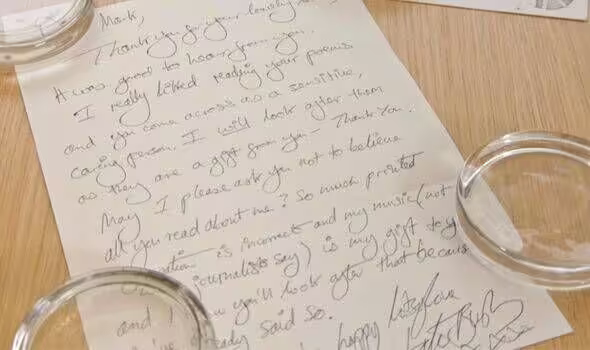 Mark,
Thank you for your lovely
It was good to hear from you.
I really liked reading your poems
and you come across as a sensitive,
caring person. I will look after them
as they are a gift from you - Thank You.
May I please ask you not to believe
all you read about me? So much printed
is incorrect and my music (not
journalists say) is my gift to you
and I you'll look after that because
already said so.
happy